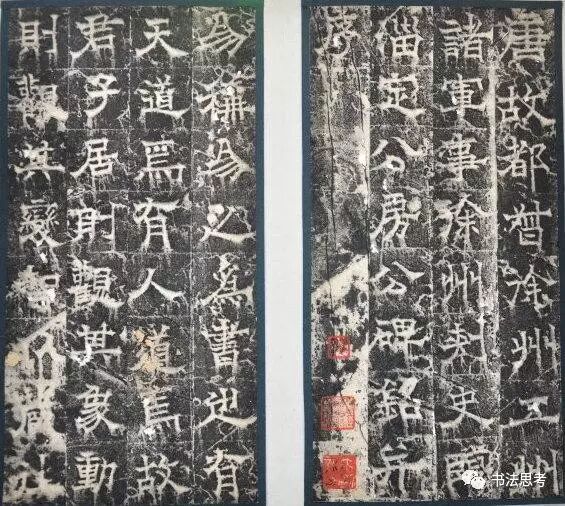 唐故都督徐州五州
諸軍事徐州刺史臨
淄定公房公碑銘并
序
易稱易之為書也有
天道焉有人道焉故
君子居則觀其象動
則觀其變
书法思考